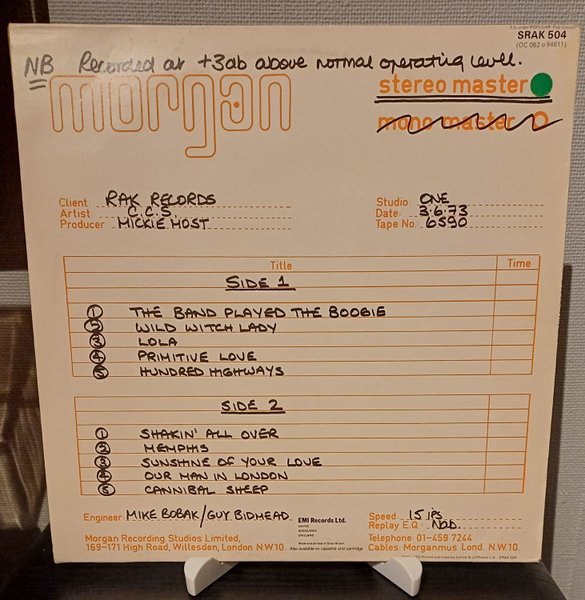 SRAK 504
(OC 062 o 94611)
NB Recorded at +3db above normal operating level.
morgan
stereo master
mono master
Client RAK RECORDS
Artist C.C.S.
Producer MICKIE MOST
Studio ONE
Date 3.6.73
Tape No 6590
Title Time
SIDE 1
1 THE BAND PLAYED THE BOOGIE
2 WILD WITCH LADY
3 LOLA
4 PRIMITIVE LOVE
5 HUNDRED HIGHWAYS
SIDE 2
1 SHAKIN' ALL OVER
2 MEMPHIS
3 SUNSHINE OF YOUR LOVE
4 OUR MAN IN LONDON
5 CANNIBAL SHEEP
Engineer MIKE BOBAK/GUY BIDMEAD
EMI Records Ltd.
HAYES
MIDDLESEX
ENGLAND
Made and printed in Great Britain
Also available on cassette and cartridge
Speed 15 ips
Replay E.Q. NAB.
Morgan Recording Studios Limited,
169-171 High Road, Willesden, London N.W.10.
Telephone 01-459 7244
Cables Morganmus Lond. N.W.10.
SRAK 504